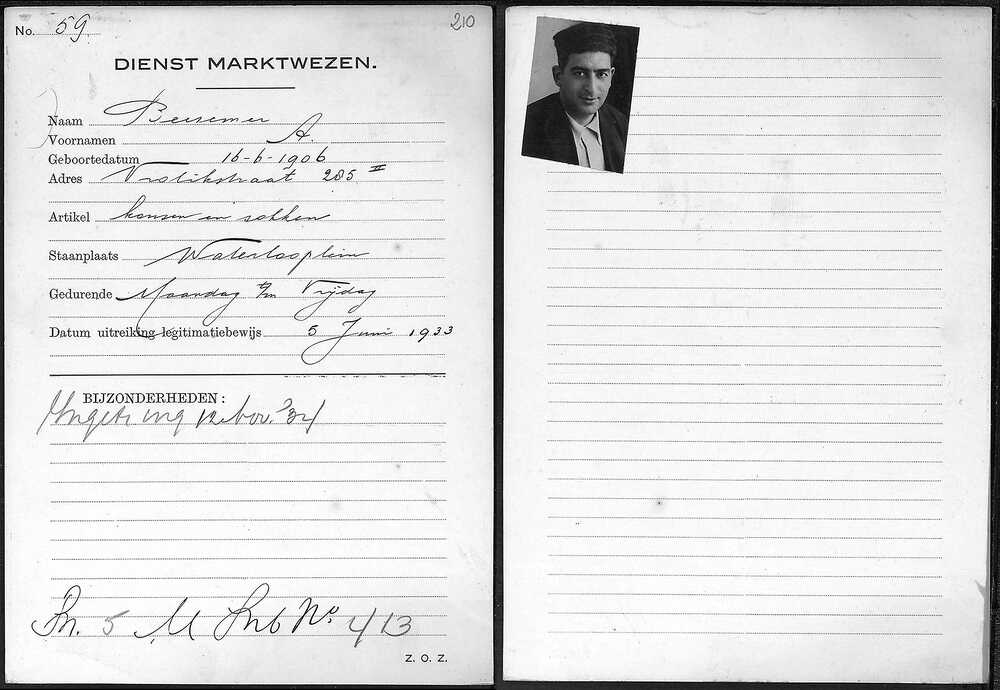 No. 59.
210
DIENST MARKTWEZEN.
Naam Beesemer
Voornamen A.
Geboortedatum 16-6-1906
Adres Vrolikstraat 285 II
Artikel kousen en sokken
Staanplaats Waterlooplein
Gedurende Maandag t/m Vrijdag
Datum uitreiking legitimatiebewijs 5 Juni 1933
BIJZONDERHEDEN:
12 Nov. '34
5 M No. 413
Z. O. Z.